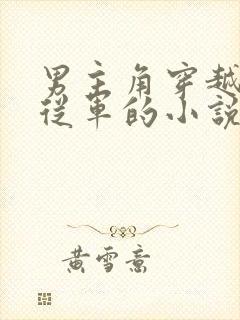 男主角穿越
從軍的小說
黃雪意